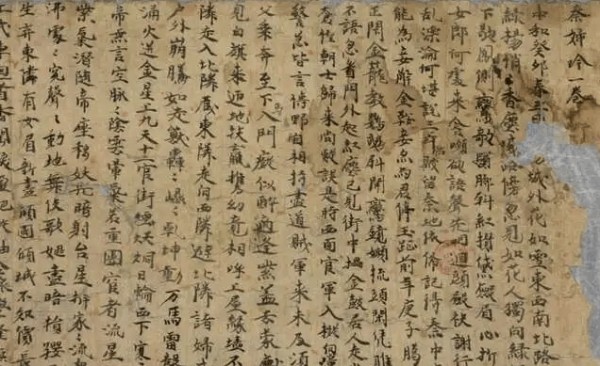 秦婦吟一卷
中和癸卯春三月 城外花如雪東西南北路
綠楊悄〻香塵滅路傍忽見如花人獨向綠
下 鳳側鸞欹鬢脚斜紅攢黛斂眉心折
女郎何處來含嚬欲語聲先咽迴頭斂袂謝行
亂漂淪何堪說三年陷賊留秦地依俙記得秦中
能為妾解金鞍妾亦為君停玉趾前年庚子臈
正閉金籠教鸚鵡斜開鸞鏡懶梳頭閑凭雕
不語忽看門外起紅塵已見街中擂金鼓居人走出
倉惶朝士歸來尚疑誤是時西面官軍入擬向潼
警急皆言博野自相持盡道賊軍來未及須
父乘奔至下入門癡似醉適逢紫蓋去蒙塵
見白旗來迊地扶羸携幼競相呼上屋緣墻不
隣走入北隣藏東隣走向西隣避北隣諸婦
戶外崩騰如走獸轟〻崐〻乾坤動万馬雷聲
涌火迸金星上九天十二官街煙烘烔日輪西下寒
帝無言空脉〻陰雲暈氣若重圍宦者流星
紫氣潛隨帝座移妖光暗射台星拆家〻流血
沸 〻冤聲〻動地舞伎歌姬盡暗捐嬰
生弃東隣有女眉新畫傾國傾城不知價長
上戎車迴首香閨淚盈把